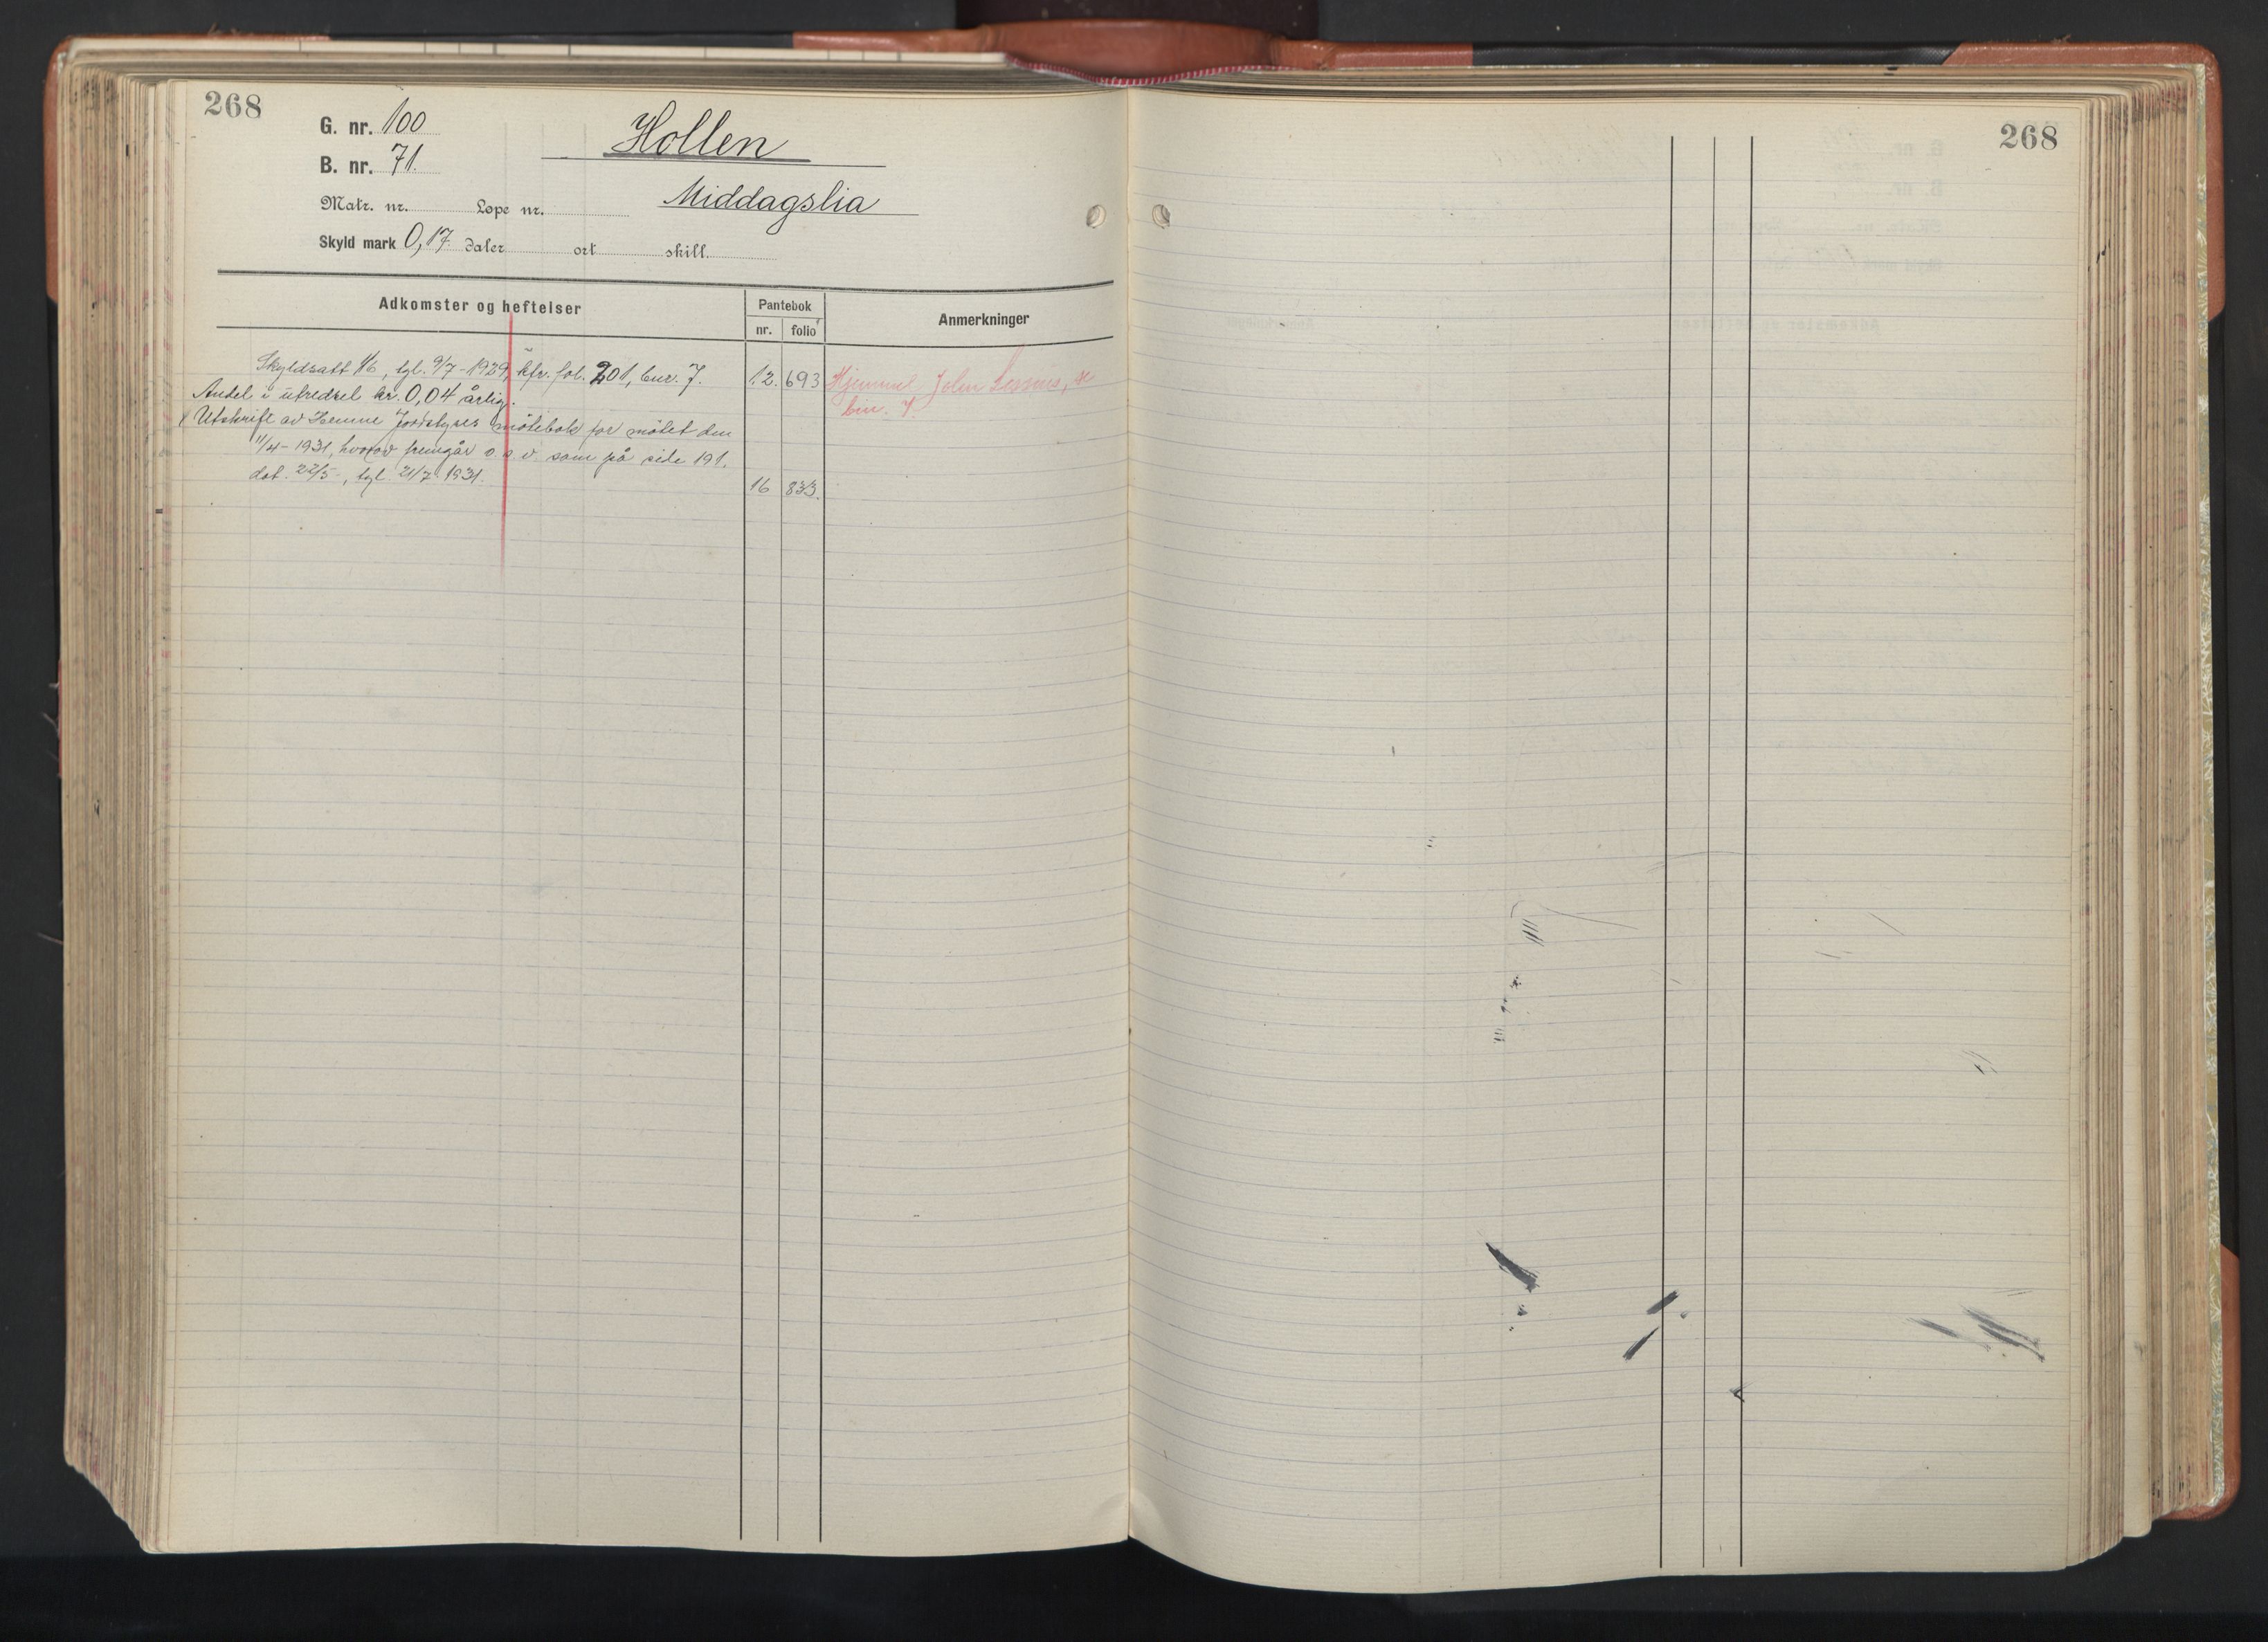 268
268
G. nr. 100
Hollen
B. nr. 71.
Middagslia
Matr. nr. Løpe nr.
Skyld mark 0,17 daler ort skill.
Adkomster og heftelser
Pantebok
nr. folio
Anmerkninger
Skyldsatt 1/6, tgl. 9/7-1929, kfr. fol. 201, bnr. 7. 12. 693
Hjemmel John
bnr. 7.
Andel i utredsel kr. 0,04 årlig.
Utskrift av Hemne Jordstyres møtebok for møtet den
11/4-1931, hvorav fremgår o.s.v. som på side 191,
dat. 22/5-, tgl. 21/7 1931. 16 833.